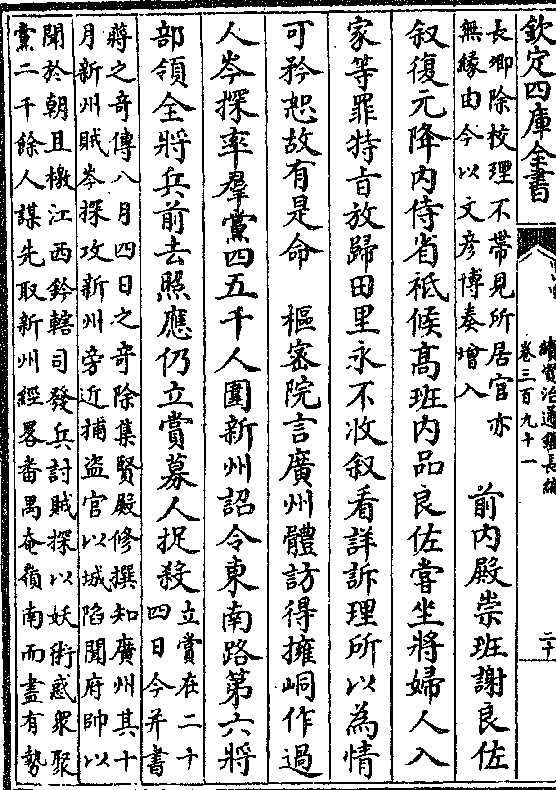 欽定四庫全書
續資治通鑑長編
卷三百九十一
二十
長卿除校理不帶見所居官亦
無緣由今以文彥博奏增入
前内殿崇班謝良佐
叙復元降内侍省祗候髙班内品良佐嘗坐將婦人入
家等罪特㫖放歸田里永不收叙看詳訴理所以為情
可矜恕故有是命 樞密院言廣州體訪得擁峒作過
人岑探率羣黨四五千人圍新州詔令東南路第六將
部領全將兵前去照應仍立賞募人捉殺
立賞在二十
四日今并書
蔣之竒傳八月四日之竒除集賢殿修撰知廣州其十
月新州賊岑探攻新州旁近捕盜官以城陷聞府帥以
聞於朝且檄江西鈐轄司發兵討賊探以妖術惑衆聚
黨二千餘人謀先取新州經畧番禺奄嶺南而盡有勢